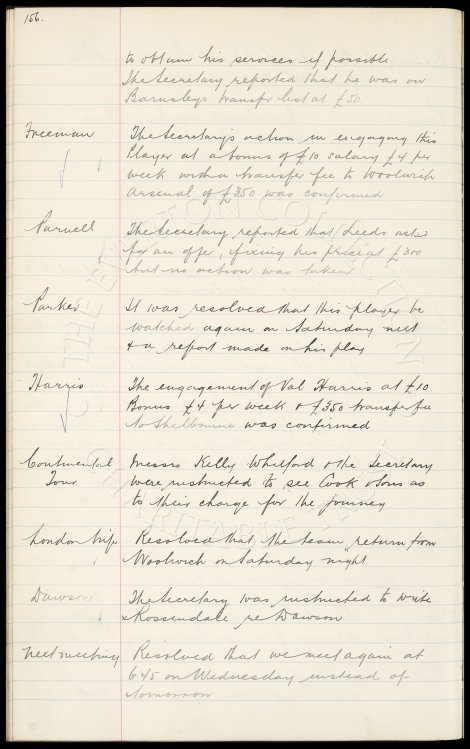 156.
to obtain his services if possible
The Secretary reported that he was on
Barnsleys transfer list at £50.
Freeman The Secretary's action in engaging this
Player at a bonus of £10 salary £4 per
week with a transfer fee to Woolwich
Arsenal of £350 was confirmed
Parnell The Secretary reported that Leeds asked
for an offer, fixing his price at £300
but no action was taken
Parker It was resolved that this player be
watched again on Saturday next
& a report made on his play
Harris The engagement of Val Harris at £10
Bonus £4 per week & £350 transfer fee
to Shelbourne was confirmed
Continental Messrs Kelly Whitford & the Secretary
Tour were instructed to see Cook & Sons as
to their charge for the journey
London trip Resolved that the team return from
Woolwich on Saturday night
Dawson The Secretary was instructed to write
Rossendale re Dawson
Next meeting Resolved that we meet again at
6.45 on Wednesday instead of
tomorrow
THE EVERTON COLLECTION
CHARITABLE